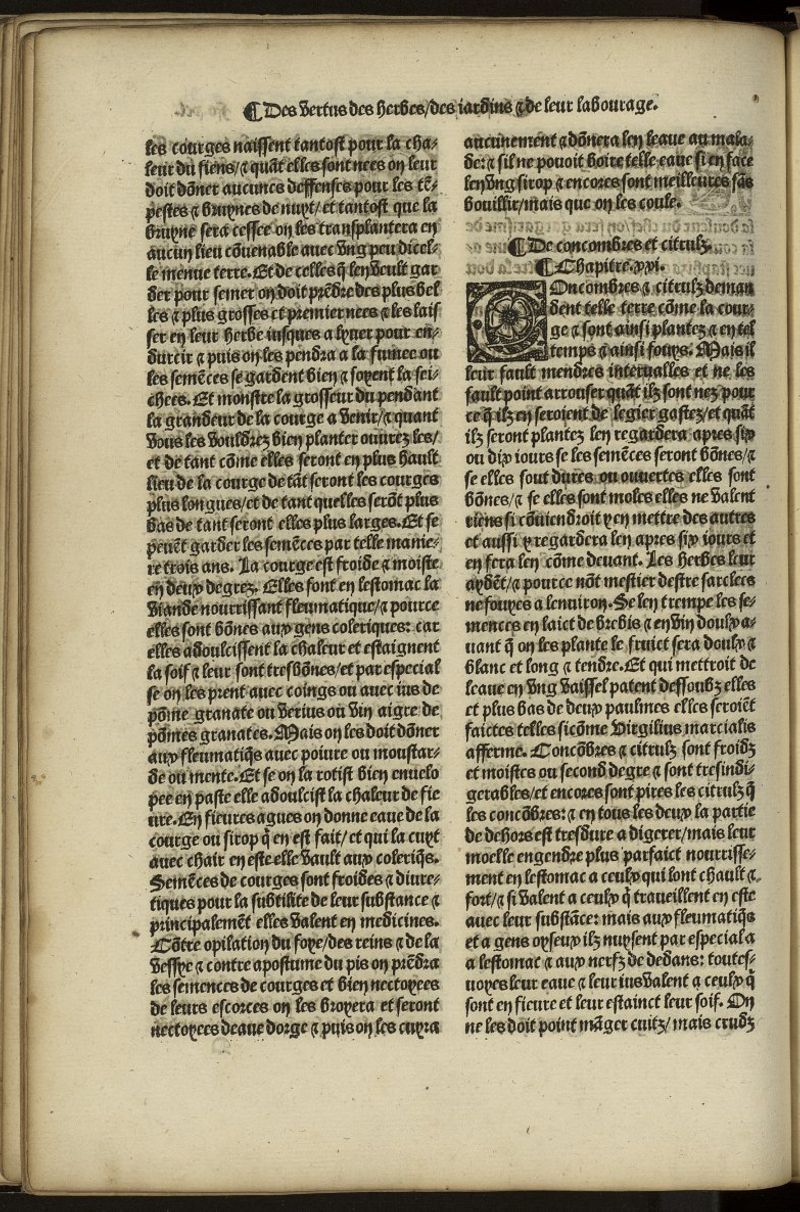 ¶ Des vertus des herbes/des iardins ⁊ de leur labourage.
les courges naissent tantost pour la cha-
leur du fiens/⁊ quãt elles sont nees on leur
doit dõner aucunes deffenses pour les tẽ-
pestes ⁊ bruynes de nuyt/ et tantost que la
bruyne sera cessee on les transplantera en
aucun lieu cõuenable auec vng peu dicel-
le menue terre. Et de celles q̃ len veult gar
der pour semer on doit prẽdre des plus bel
les ⁊ plus grosses et premier nees ⁊ les lais
ser en leur herbe iusques a lyuer pour en-
durcir ⁊ puis on les pendra a la fumee ou
les semẽces se gardent bien ⁊ soyent la sei-
chees. Et monstre la grosseur du pendant
la grandeur de la courge a venir/⁊ quant
vous les vouldrez bien planter ouurez les/
et de tant cõme elles seront en plus hault
lieu de la courge de tãt seront les courges
plus longues/et de tant quelles serõt plus
bas de tant seront elles plus larges. Et se
peuẽt garder les semẽces par telle manie-
re trois ans. La courge est froide ⁊ moiste
en deux degrez. Elles font en lestomac la
viande nourrissant fleumatique/⁊ pource
elles sont bõnes aux gens coleriques: car
elles adoulcissent la chaleur et estaignent
la soif ⁊ leur sont tresbõnes/et par especial
se on les prent auec coings ou auec ius de
põme granate ou verius ou vin aigre de
põmes granates. Mais on les doit dõner
aux fleumatiq̃s auec poiure ou moustar-
de ou mente. Et se on la rotist bien enuelo
pee en paste elle adoulcist la chaleur de fie
ure. En fieures agues on donne eaue de la
courge ou sirop q̃ en est fait/ et qui la cuyt
auec chair en este elle vault aux coleriq̃s.
Semẽces de courges sont froides ⁊ diure-
tiques pour la subtilite de leur substance ⁊
principalemẽt elles valent en medicines.
Cõtre opilation du foye/des reins ⁊ de la
vessye ⁊ contre apostume du pis on prẽdra
les semences de courges et bien nectoyees
de leurs escorces on les broyera et seront
nectoyees deaue dorge ⁊ puis on les cuyra
aucunement ⁊ dõnera len leaue au mala-
de: ⁊ sil ne pouoit boire telle eaue si en face
len vng sirop ⁊ encores sont meilleures sãs
bouillir/mais que on les coule.
¶ De concombres et citrulz.
¶ Chapitre. xxi.
COncombres ⁊ citrulz deman
dent telle terre cõme la cour-
ge ⁊ sont ainsi plantez ⁊ en tel
temps ⁊ ainsi fouys. Mais il
leur fault mendres interualles et ne les
fault point arrouser quãt ilz sont nez pour
ce q̃ ilz en seroient de legier gastez/et quãt
ilz seront plantez len regardera apres six
ou dix iours se les semẽces seront bõnes/⁊
se elles sout dures ou ouuertes elles sont
bõnes/⁊ se elles sont moles elles ne valent
riens si cõuiendroit y en mettre des autres
et aussi y regardera len apres six iours et
en fera len cõme deuant. Les herbes leur
aydẽt/⁊ pource nõt mestier destre sarclees
ne fouyes a lenuiron. Se len trempe les se-
mences en laict de brebis ⁊ en vin doulx a-
uant q̃ on les plante le fruict sera doulx ⁊
blanc et long ⁊ tendre. Et qui mettroit de
leaue en vng vaissel patent dessoubz elles
et plus bas de deux paulmes elles seroiẽt
faictes telles sicõme Virgilius marcialis
afferme. Concõbres ⁊ citrulz sont froidz
et moistes ou second degre ⁊ sont tresindi-
gerables/et encores sont pires les citrulz q̃
les concõbres: ⁊ en tous les deux la partie
de dehors est tresdure a digerer/mais leur
moelle engendre plus parfaict nourrisse-
ment en lestomac a ceulx qui lont chault ⁊
fort/⁊ si valent a ceulx q̃ traueillent en este
auec leur substãce: mais aux fleumatiq̃s
et a gens oyseux ilz nuysent par especial a
a lestomac ⁊ aux nerfz de dedans: toutes-
uoyes leur eaue ⁊ leur ius valent a ceulx q̃
sont en fieure et leur estainct leur soif. On
ne les doit point mãger cuitz/ mais crudz